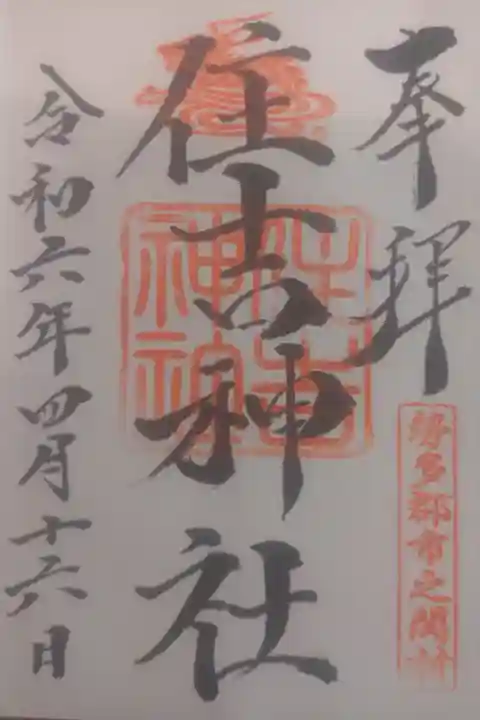 奉拝
勢多郡市之関村
住吉神社
住吉
神社
令和六年四月十六日